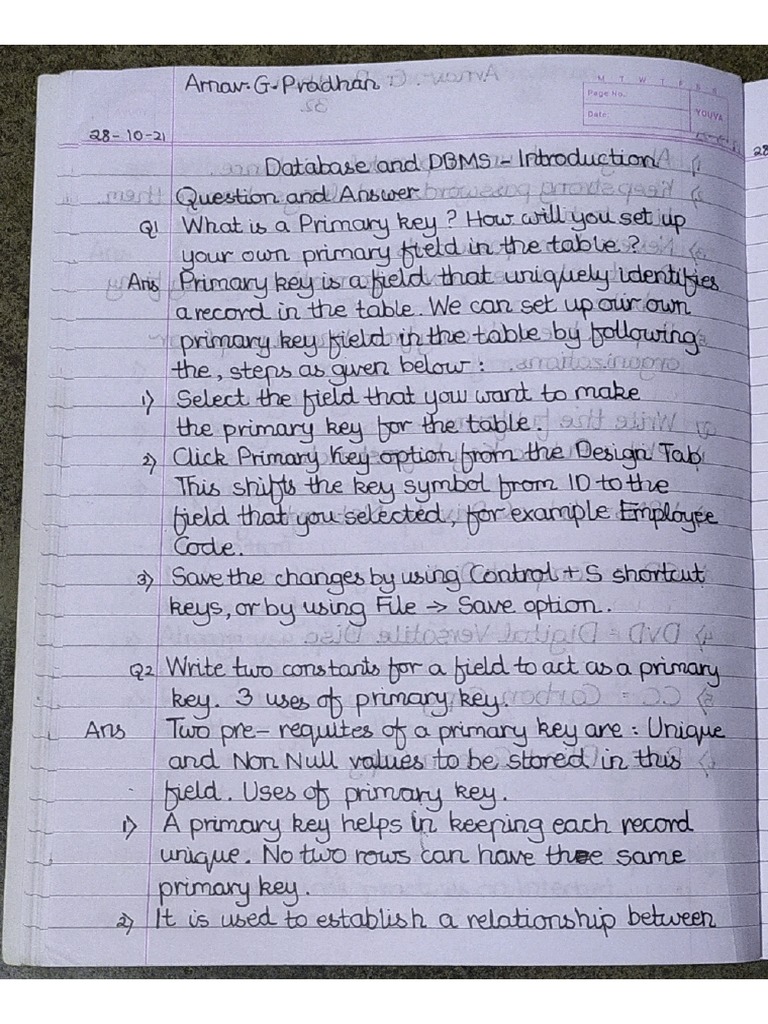 Arnav. G. Pradhan
M T W T F S S
Page No.:
Date:
YOUVA
28-10-21
Database and DBMS - Introduction
Question and Answer
Q1 What is a Primary key? How will you set up
your own primary field in the table?
Ans Primary key is a field that uniquely identifies
a record in the table. We can set up our own
primary key field in the table by following
the, steps as given below:
1) Select the field that you want to make
the primary key for the table.
2) Click Primary Key option from the Design Tab
This shifts the key symbol from ID to the
field that you selected, for example Employee
Code.
3) Save the changes by using Control + S shortcut
keys, or by using File → Save option.
Q2 Write two constants for a field to act as a primary
key. 3 uses of primary key.
Ans Two pre-requites of a primary key are: Unique
and Non Null values to be stored in this
field. Uses of primary key.
1) A primary key helps in keeping each record
unique. No two rows can have the same
primary key.
2) It is used to establish a relationship between
28